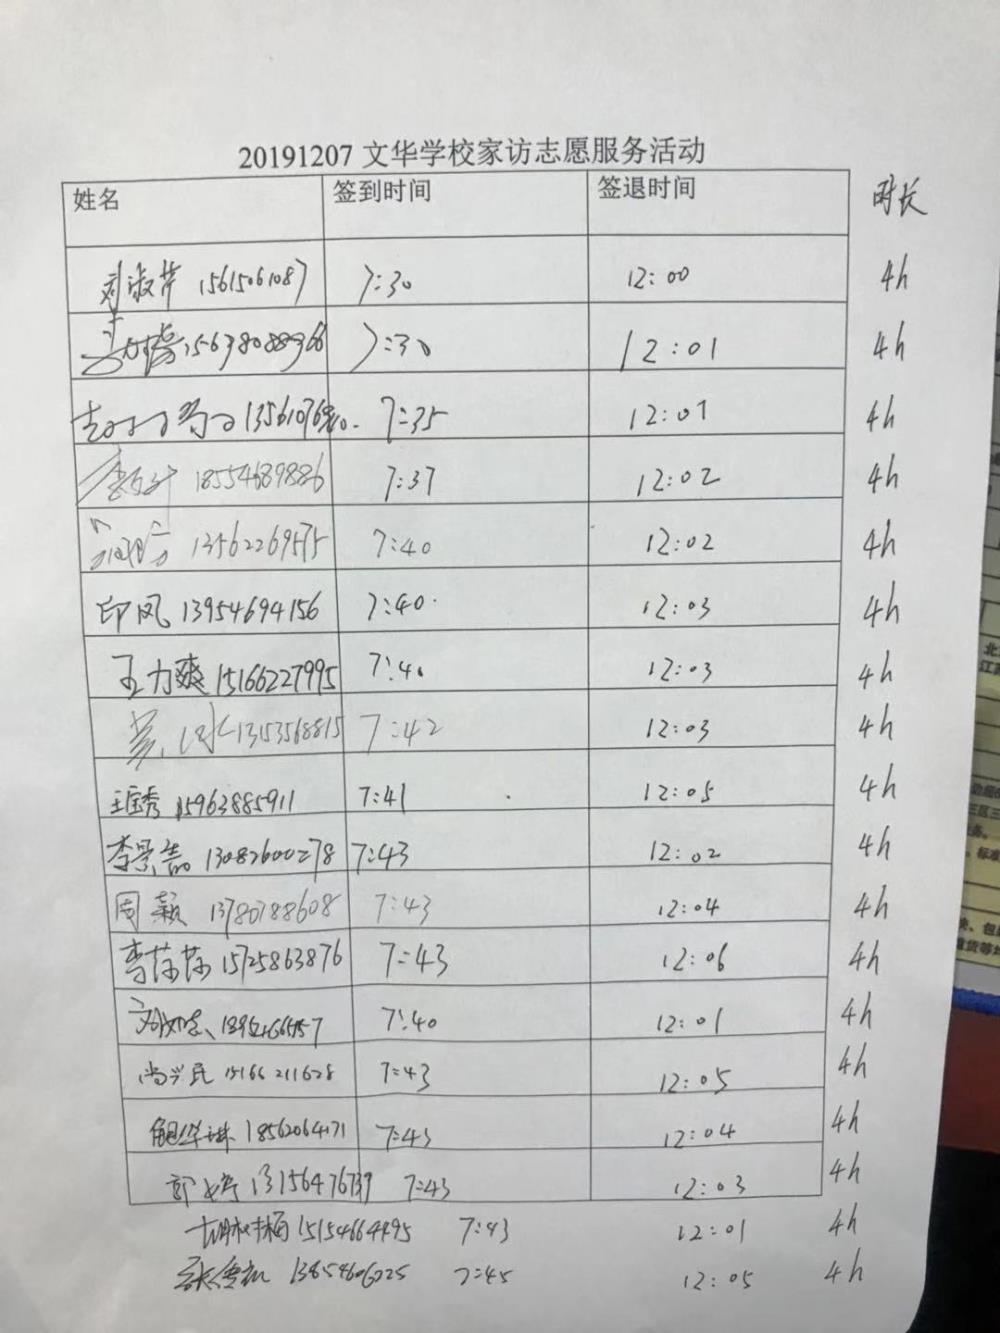 20191207 文华学校家访志愿服务活动
姓名 签到时间 签退时间 时长
刘淑芹 15615061087 7:30 12:00 4h
15638088366 7:30 12:01 4h
7:35 12:01 4h
18554689886 7:37 12:02 4h
13562269575 7:40 12:02 4h
印凤 13954694156 7:40 12:03 4h
王力爽 15166227995 7:40 12:03 4h
7:42 12:03 4h
王宝秀 15963885911 7:41 12:05 4h
李景喆 13082600278 7:43 12:02 4h
周颖 13780788608 7:43 12:04 4h
李萍萍 15725863876 7:43 12:06 4h
7:40 12:01 4h
尚兴民 15166211628 7:43 12:05 4h
18562064171 7:43 12:04 4h
郭婷 13156476739 7:43 12:03 4h
胡树梅 15154664495 7:43 12:01 4h
13854606225 7:45 12:05 4h